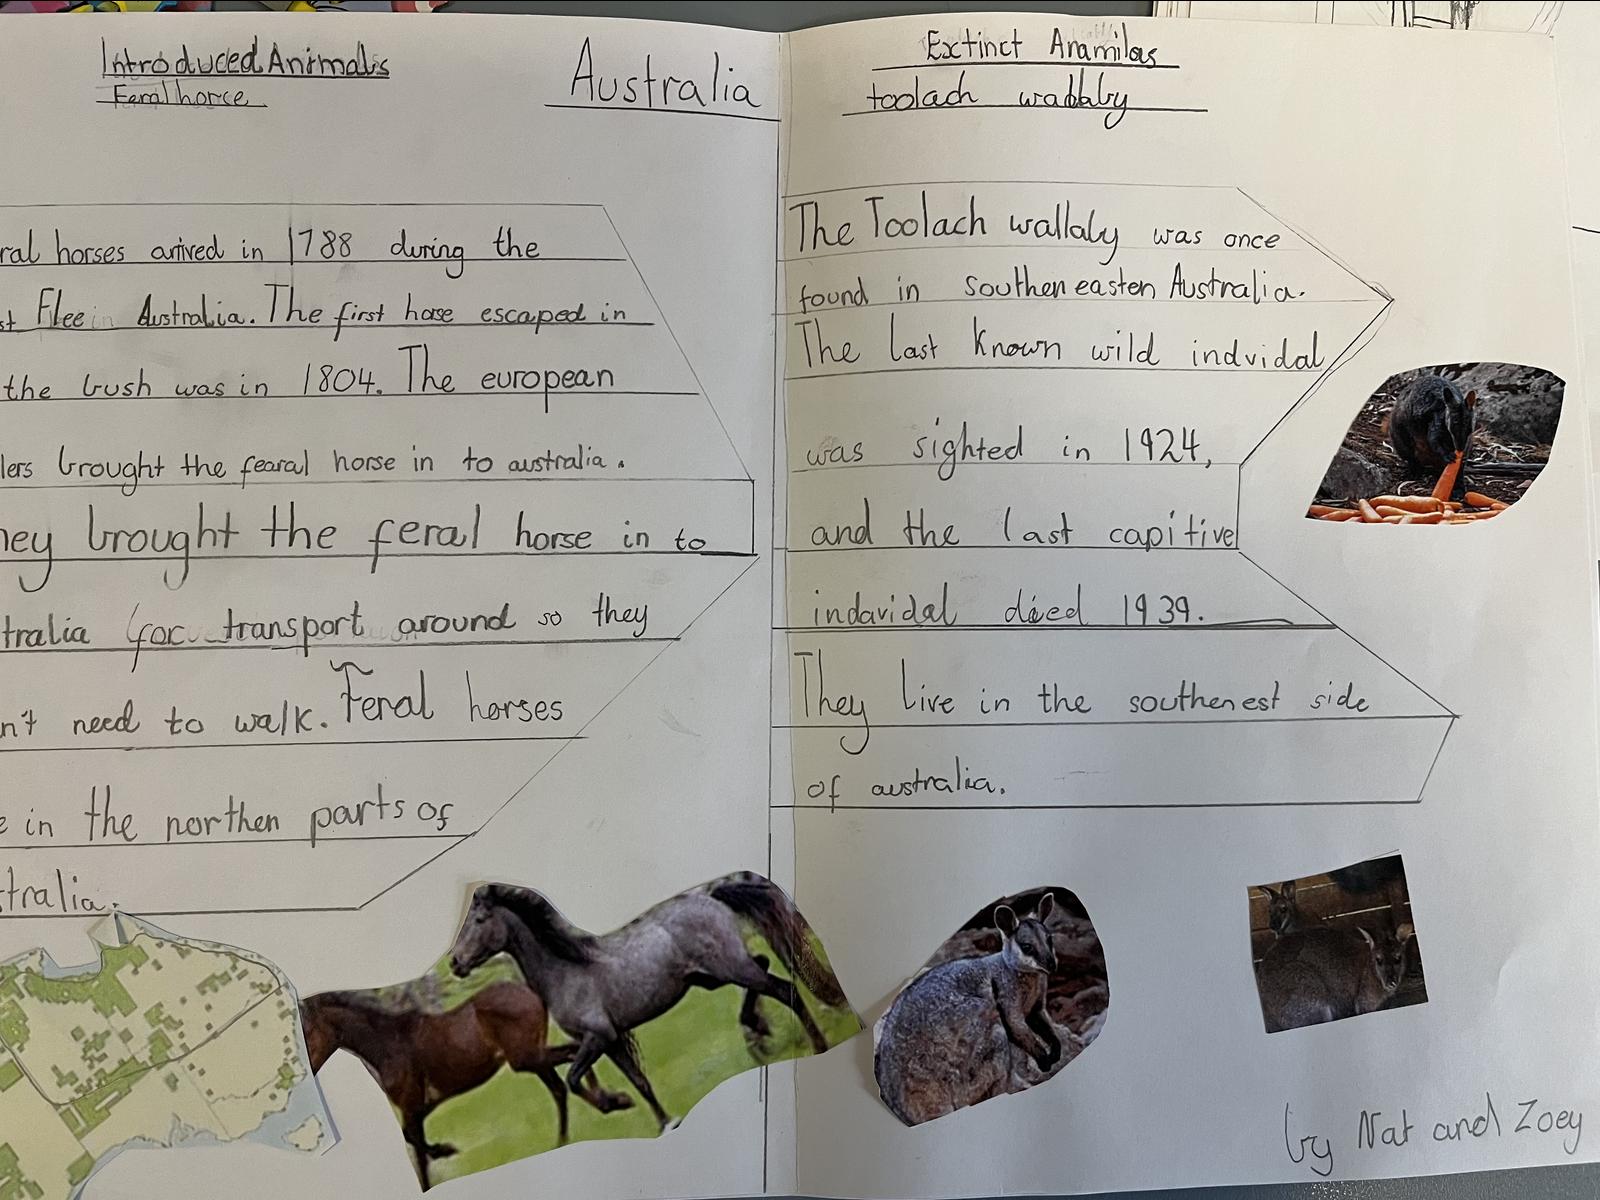 Introduced Animals
Feral horce
Australia
ral horses arived in 1788 during the
st Flee in Australia. The first hose escaped in
the bush was in 1804. The european
lers brought the fearal horse in to australia.
hey brought the feral horse in to
tralia for transport around so they
n't need to walk. Feral horses
e in the northen parts of
tralia.
Extinct Anamilas
toolach wallaby
The Toolach wallaby was once
found in southen easten Australia.
The last known wild indvidal
was sighted in 1924,
and the last capitive
indavidal died 1939.
They live in the southenest side
of australia.
by Nat and Zoey